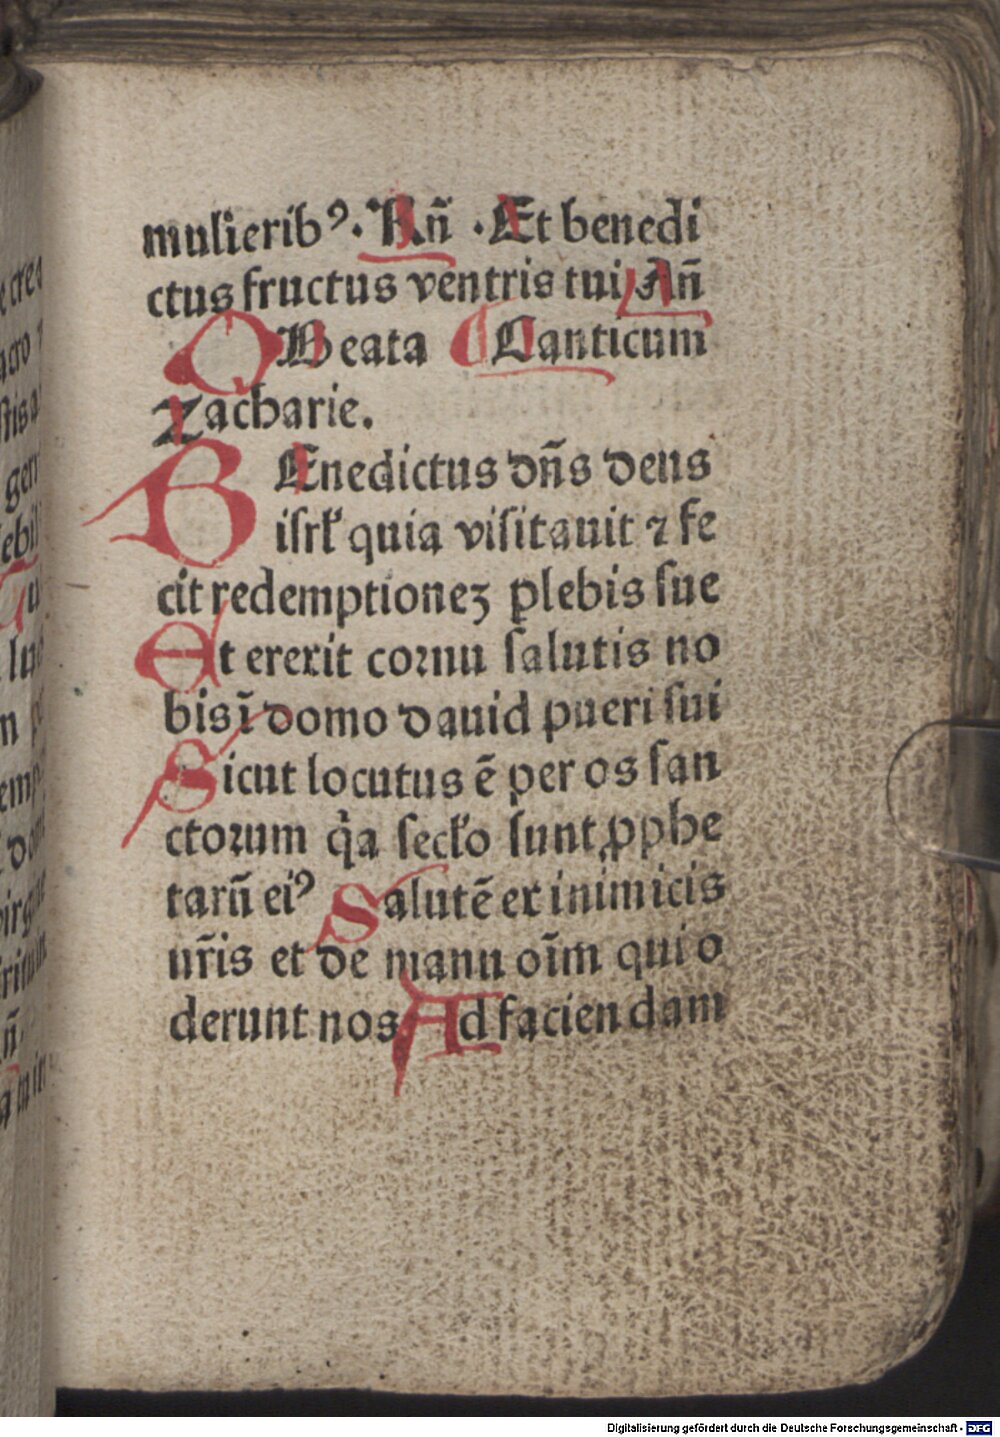 mulierib⁹. Rñ .Et benedi
ctus fructus ventris tui Añ
O Beata Canticum
Zacharie.
BEnedictus dñs deus
isrl' quia visitauit ⁊ fe
cit redemptionez plebis sue
Et erexit cornu salutis no
bis ī domo dauid pueri sui
Sicut locutus ē per os san
ctorum q̇a secl'o sunt ꝓphe
tarū ei⁹ Salutē ex inimicis
nr̃is et de manu oīm qui o
derunt nos Ad faciendam
Digitalisierung gefördert durch die Deutsche Forschungsgemeinschaft - DFG